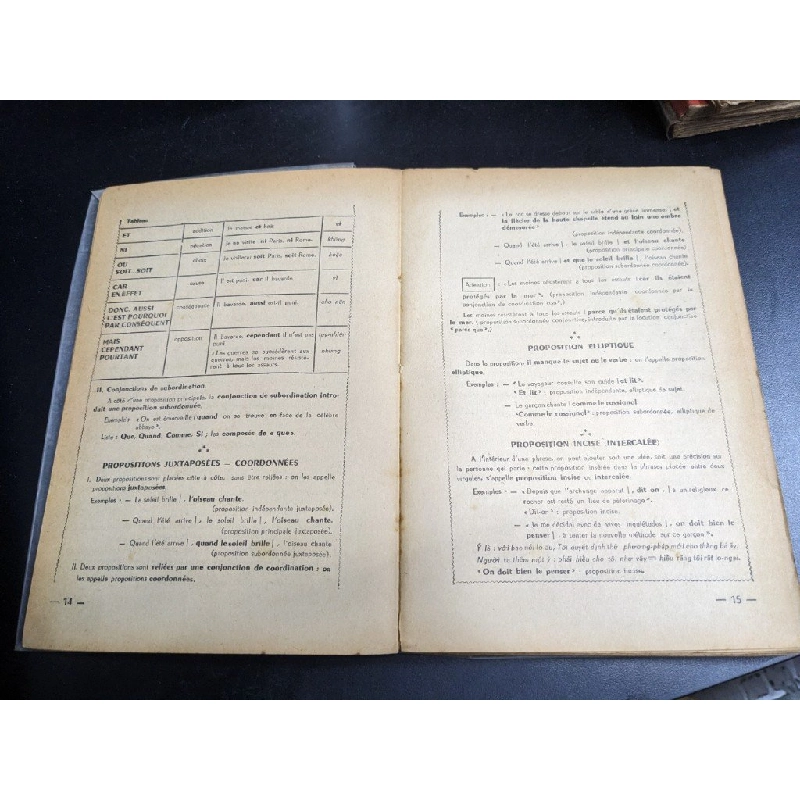 Tableau
ET addition Je mange et bois và
NI négation Je ne visite ni Paris, ni Rome. không
OU
SOIT...SOIT choix Je visiterai soit Paris, soit Rome. hoặc
CAR
EN EFFET cause Il est puni, car il bavarde. vì
DONC, AUSSI
C'EST POURQUOI
PAR CONSÉQUENT conséquence Il bavarde, aussi est-il puni. cho nên
MAIS
CEPENDANT
POURTANT opposition Il bavarde, cependant il n'est pas puni
II. Conjonctions de subordination.
A côté d'une proposition principale, la conjonction de subordination intro-
duit une proposition subordonnée.
Exemple : « On est émerveillé quand on se trouve en face de la célèbre
abbaye ».
Liste : Que, Quand, Comme, Si ; les composés de « que ».
PROPOSITIONS JUXTAPOSÉES — COORDONNÉES
I. Deux propositions sont placées côte à côte, sans être reliées : on les appelle
propositions juxtaposées.
Exemples : — Le soleil brille |, l'oiseau chante.
(proposition indépendante juxtaposée).
— Quand l'été arrive |, le soleil brille |, l'oiseau chante.
(proposition principale juxtaposée).
— Quand l'été arrive |, quand le soleil brille |, l'oiseau chante
(proposition subordonnée juxtaposée).
II. Deux propositions sont reliées par une conjonction de coordination : on
les appelle propositions coordonnées.
— 14 —
Exemples : — « Le roc se dresse debout sur le sable d'une grève immense ; et
la flèche de la haute chapelle étend au loin une ombre
démesurée »
(proposition indépendante coordonnée).
— Quand l'été arrive |, le soleil brille | et l'oiseau chante
(proposition principale coordonnée)
— Quand l'été arrive | et que le soleil brille |, l'oiseau chante
(proposition subordonnée coordonnée).
Attention : « Les moines résistèrent à tous les assauts | car ils étaient
protégés par la mer ». (proposition indépendante coordonnée par la
conjonction de coordination « car »).
Les moines résistèrent à tous les assauts | parce qu'ils étaient protégés par
la mer. (proposition subordonnée conjonctive, introduite par la locution conjonctive
« parce que »).
PROPOSITION ELLIPTIQUE
Dans la proposition il manque le sujet ou le verbe : on l'appelle proposition
elliptique.
Exemples : — « Le voyageur consulte son guide | et lit ».
« Et lit » : proposition indépendante, elliptique du sujet.
— Le garçon chante | comme le rossignol
« Comme le rossignol » : proposition subordonnée, elliptique du
verbe.
PROPOSITION INCISE (INTERCALÉE)
A l'intérieur d'une phrase, on peut ajouter soit une idée, soit une précision sur
la personne qui parle : cette proposition insérée dans la phrase, placée entre deux
virgules s'appelle proposition incise ou intercalée.
Exemples : — « Depuis que l'archange apparut |, dit-on |, à un religieux, ce
rocher est resté un lieu de pèlerinage ».
« Dit-on » : proposition incise.
— « Je me décidai
on doit bien le
penser |, à tenter la nouvelle méthode sur ce garçon ».
« On doit bien le penser » : proposition incise.
— 15 —